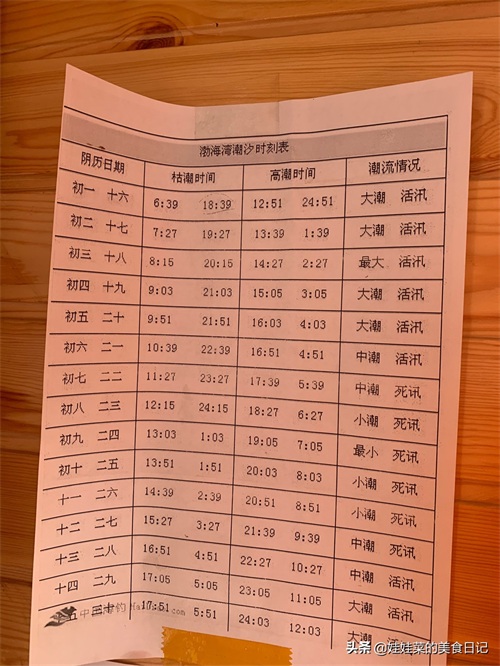 渤海湾潮汐时刻表
阴历日期 枯潮时间 高潮时间 潮流情况
初一 十六 6:39 18:39 12:51 24:51 大潮 活汛
初二 十七 7:27 19:27 13:39 1:39 大潮 活汛
初三 十八 8:15 20:15 14:27 2:27 最大 活汛
初四 十九 9:03 21:03 15:05 3:05 大潮 活汛
初五 二十 9:51 21:51 16:03 4:03 大潮 活汛
初六 二一 10:39 22:39 16:51 4:51 中潮 活汛
初七 二二 11:27 23:27 17:39 5:39 中潮 死讯
初八 二三 12:15 24:15 18:27 6:27 小潮 死讯
初九 二四 13:03 1:03 19:05 7:05 最小 死讯
初十 二五 13:51 1:51 20:03 8:03 小潮 死讯
十一 二六 14:39 2:39 20:51 8:51 小潮 死讯
十二 二七 15:27 3:27 21:39 9:39 中潮 死讯
十三 二八 16:51 4:51 22:27 10:27 中潮 活汛
十四 二九 17:05 5:05 23:05 11:05 大潮 活汛
十五 三十 17:51 5:51 24:03 12:03 大潮 活汛
头条 @娃娃菜的美食日记